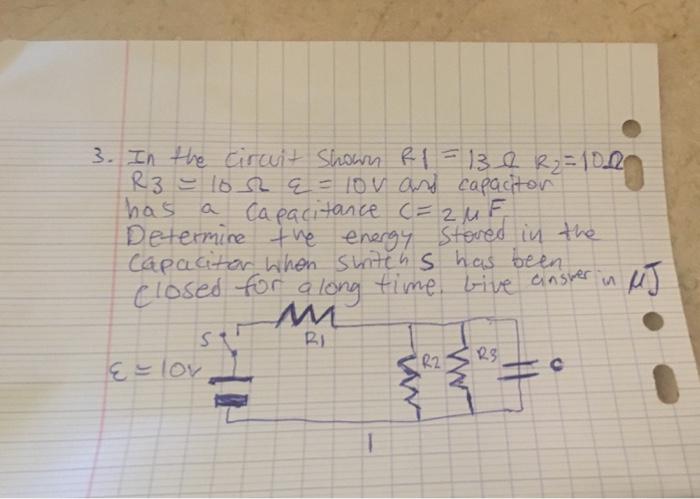 3. In the circuit shown R1 = 13 Ω R2 = 10Ω
R3 = 10 Ω ε = 10V and capacitor
has a capacitance C = 2 μF
Determine the energy stored in the
capacitor when switch S has been
closed for a long time. Give answer in μJ
R1
S
ε = 10v
R2
R3
C